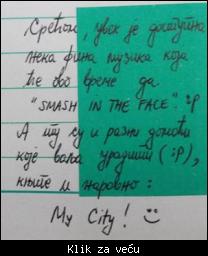 Срећом, увек је доступна
нека фина музика која
ће ово време да
"SMASH IN THE FACE". :P
А ту су и разни домаћи
које ваља урадити (:P),
књиге и наравно:
My City!
Klik za veću